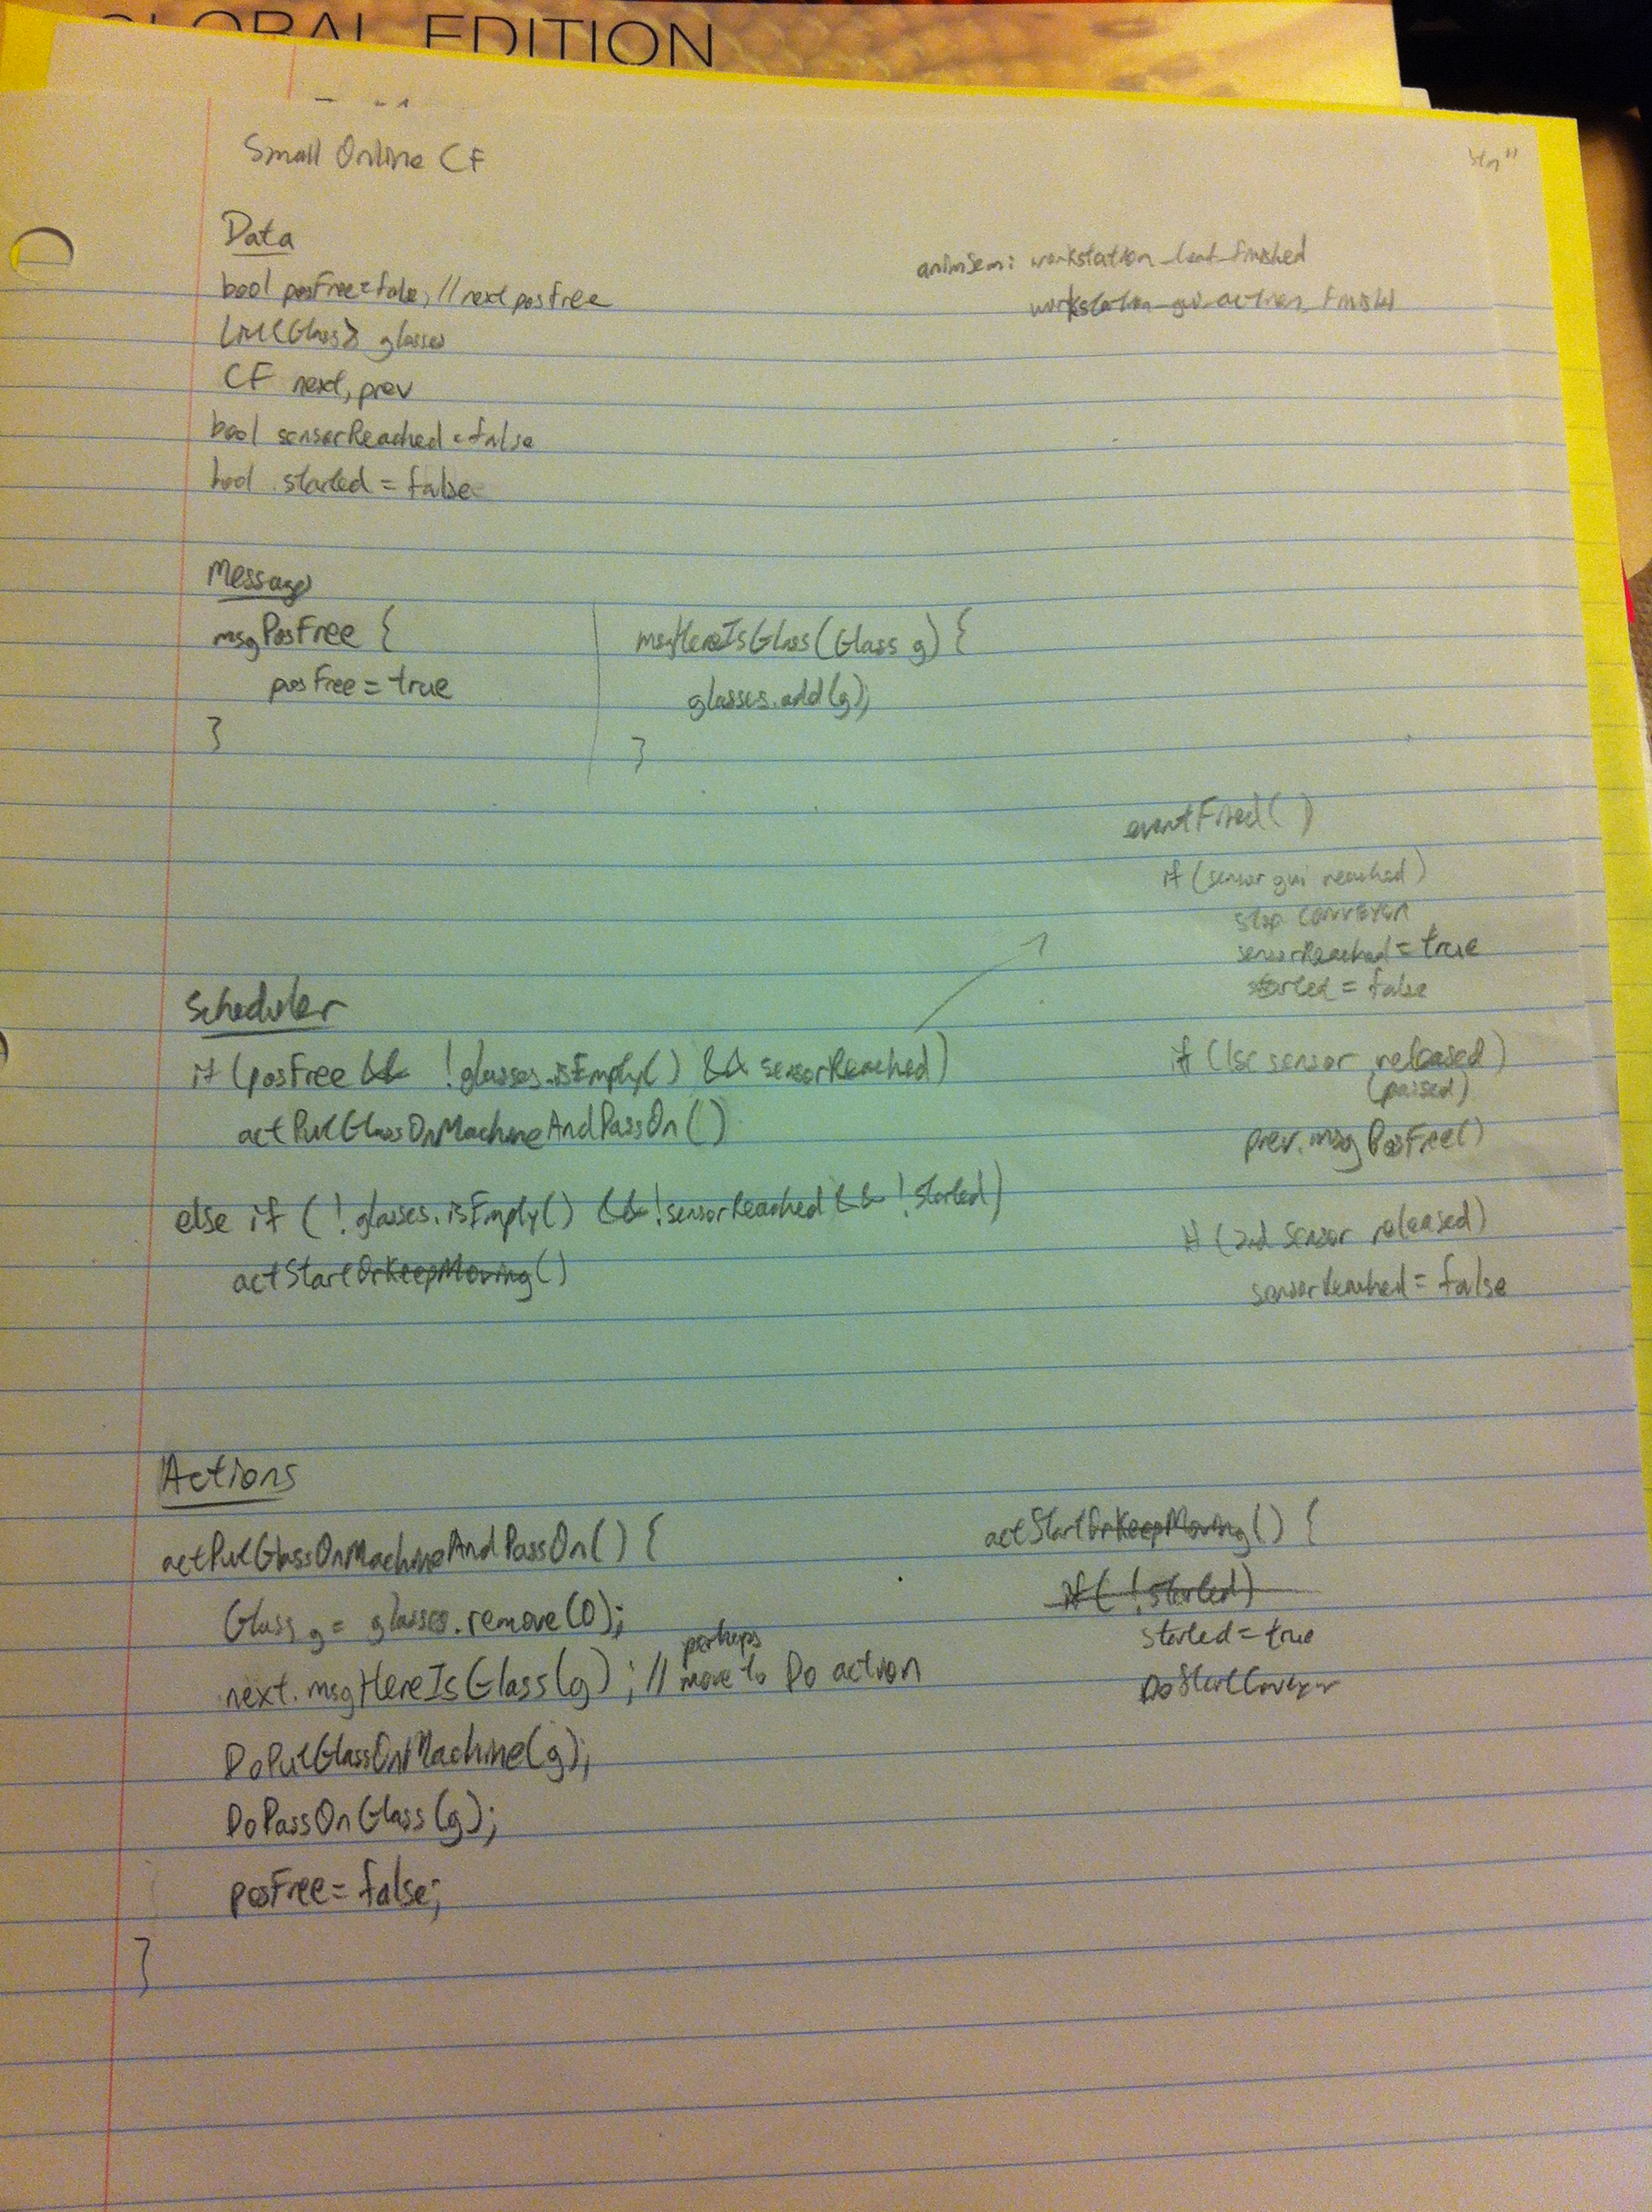 GLOBAL EDITION
Small Online CF
Data
bool posFree=false; // next posfree
List<Glass> glasses
CF next, prev
bool sensorReached = false
bool started = false
animSem: workstation_load_finished
workstation_gui_action_finished
Messages
msgPosFree {
posFree = true
}
msgHereIsGlass(Glass g) {
glasses.add(g);
}
eventFired( )
if (sensor gui reached)
stop conveyor
sensorReached = true
started = false
if (1st sensor released)
(passed)
prev.msgPosFree()
if (2nd sensor released)
sensorReached = false
Scheduler
if (posFree && !glasses.isEmpty() && sensorReached)
actPutGlassOnMachineAndPassOn()
else if (!glasses.isEmpty() && !sensorReached && !started)
actStartOrKeepMoving()
Actions
actPutGlassOnMachineAndPassOn() {
Glass g = glasses.remove(0);
perhaps
next.msgHereIsGlass(g); // move to Do action
DoPutGlassOnMachine(g);
DoPassOnGlass(g);
posFree = false;
}
actStartOrKeepMoving() {
if (!started)
started = true
DoStartConveyor